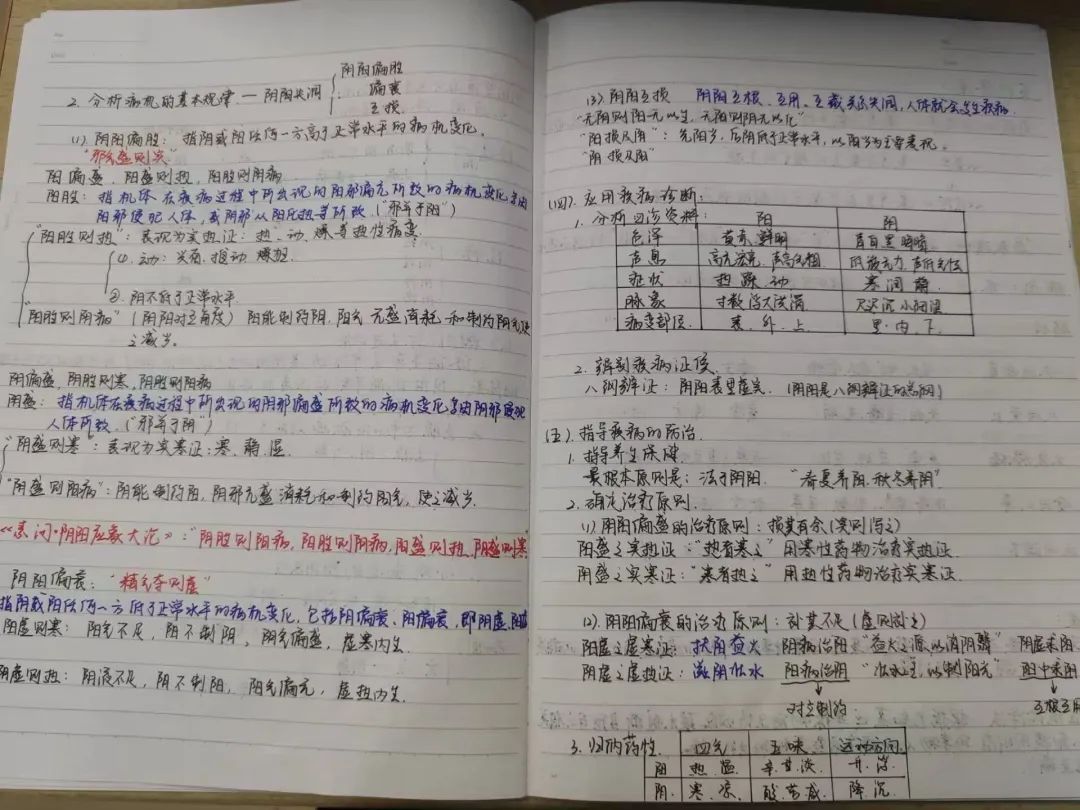 2. 分析病机的基本规律 — 阴阳失调
阴阳偏胜
偏衰
互损
(1). 阴阳偏胜: 指阴或阳任何一方高于正常水平的病机变化.
"邪气盛则实"
阳偏盛, 阳盛则热, 阳胜则阴病
阳胜: 指机体在疾病过程中所出现的阳邪偏亢所致的病机变化多由
阳邪侵犯人体, 或阴邪从阳化热等所致 ("邪并于阳")
"阳胜则热": 表现为实热证: 热、动、燥等热性病变.
①. 动: 头痛、躁动
②. 阴不低于正常水平.
"阳胜则阴病" (阴阳对立角度) 阳能制约阴, 阳气亢盛消耗和制约阴气使
之减少.
阴偏盛, 阴胜则寒, 阴胜则阳病
阴盛: 指机体在疾病过程中所出现的阴邪偏盛所致的病机变化多由阴邪侵犯
人体所致. ("邪并于阴")
"阴盛则寒": 表现为实寒证: 寒、静、湿.
"阴盛则阳病": 阴能制约阳, 阴邪亢盛消耗和制约阳气, 使之减少.
《素问·阴阳应象大论》: "阴胜则阳病, 阳胜则阴病, 阳盛则热, 阴盛则寒
阴阳偏衰: "精气夺则虚"
指阴或阳任何一方低于正常水平的病机变化, 包括阴偏衰、阳偏衰, 即阴虚、阳虚
阳虚则寒: 阳气不足, 阳不制阴, 阴气偏盛, 虚寒内生.
阴虚则热: 阴液不足, 阴不制阳, 阳气偏亢, 虚热内生.
(3) 阴阳互损 阴阳互根、互用、互藏关系失调, 人体就会产生疾病.
"无阴则阳无以生, 无阳则阴无以化"
"阳损及阴": 先阳少, 后阴低于正常水平, 以阳少为主要表现.
"阴损及阳"
(四). 应用疾病诊断:
1. 分析四诊资料:
阳 阴
色泽 黄赤 鲜明 青白黑 晦暗
声息 高亢宏亮, 声高气粗 低微无力, 声低气怯
症状 热 躁 动 寒 润 静.
脉象 寸 数 浮大洪滑 尺 迟 沉 小细涩
病变部位 表、外、上 里、内、下.
2. 辨别疾病证候.
八纲辨证: 阴阳表里虚实. (阴阳是八纲辨证的总纲)
(五). 指导疾病的防治.
1. 指导养生保健
最根本原则是: 法于阴阳 "春夏养阳, 秋冬养阴"
2. 确定治疗原则.
(1) 阴阳偏盛的治疗原则: 损其有余(实则泻之)
阳盛之实热证: "热者寒之" 用寒性药物治疗实热证.
阴盛之实寒证: "寒者热之" 用热性药物治疗实寒证.
(2). 阴阳偏衰的治疗原则: 补其不足 (虚则补之)
阳虚之虚寒证: 扶阳益火 阴病治阳 "益火之源, 以消阴翳" 阴虚采阳
阴虚之虚热证: 滋阴壮水 阳病治阴 "壮水之主, 以制阳光" 阳中求阴
对立制约 互根互用
3. 归纳药性.
四气 五味
阳 热 温. 辛. 甘. 淡. 升. 浮.
阴. 寒. 凉. 酸. 苦. 咸. 降. 沉.